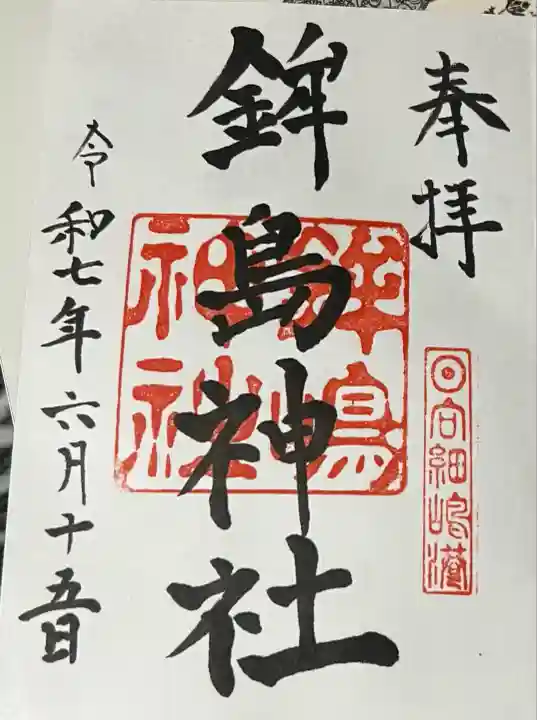 奉拝
日向細嶋港
鉾島神社
鉾島
神社
令和七年六月十五日